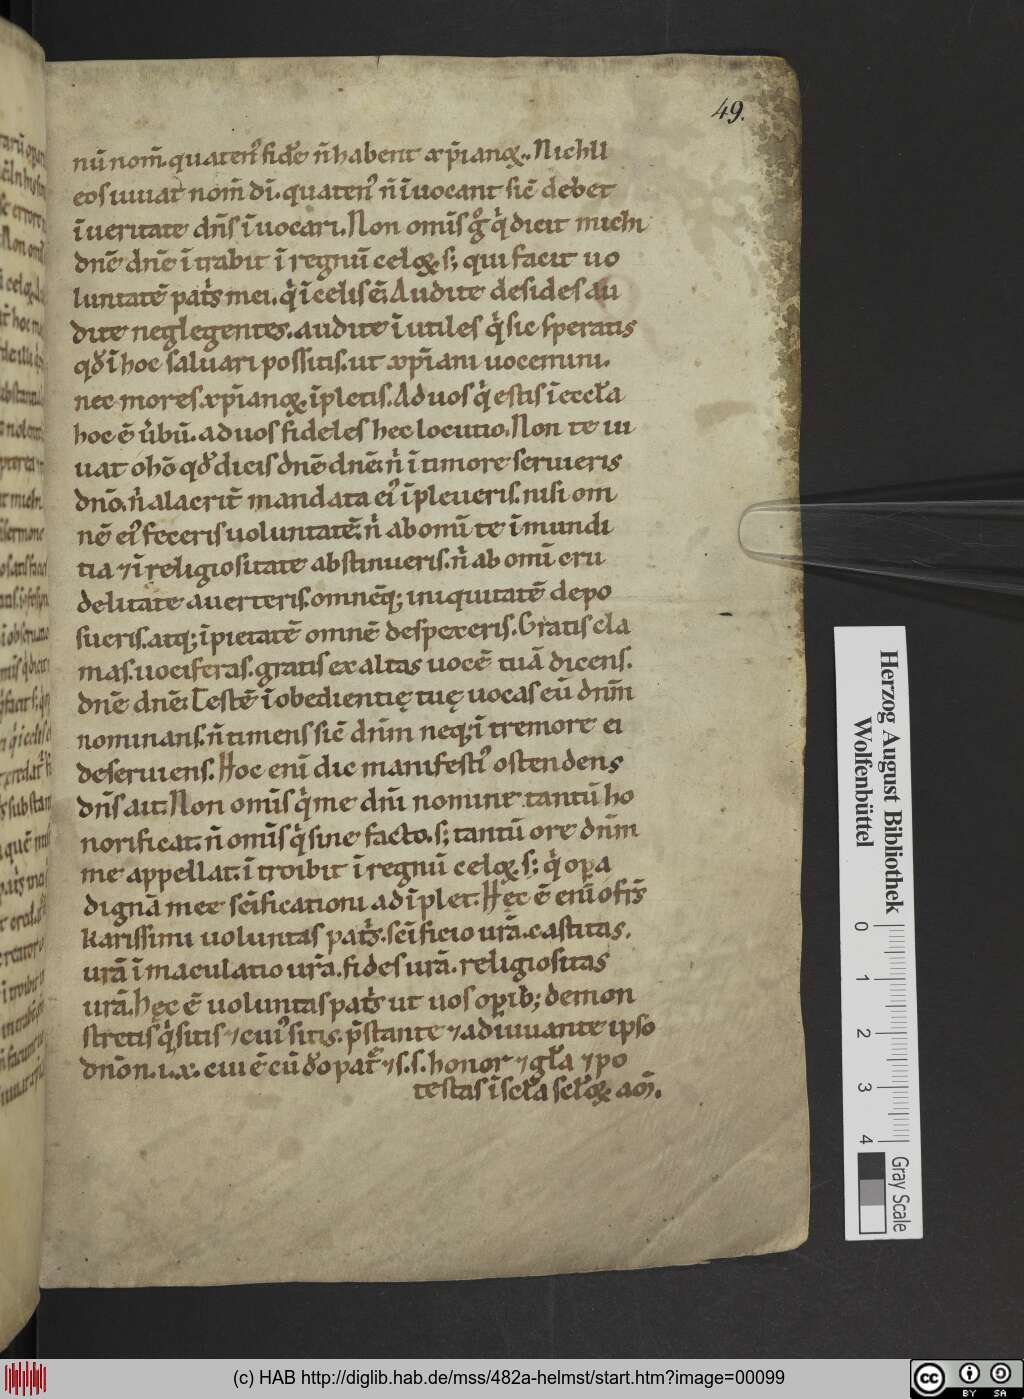 49.
nū nom̄. quaten᾿ fidē n̄ habent xp̄ianoꝝ. Nichil
eos iuuat nom̄ dī. quaten᾿ n̄ īuocant sic̄ debet
ī ueritate dn̄s īuocari. Non om̄is g̊ q̇ dicit michi
dnē dnē ītrabit ī regnū celoꝝ. s; qui facit uo
luntatē pat̓s mei. q̇ ī celis ē. Audite desides au
dite neglegentes. audite īutiles q̇ sic speratis
qđ ī hoc saluari possitis. ut xp̄iani uocemini.
nec mores xp̄ianoꝝ īpletis. Ad uos q̇ estis ī eccła
hoc ē u̇bū. ad uos fideles hec locutio. Non te iu
uat o hō qđ dicis dnē dnē. n̓ ī timore seruieris
dnō. n̓ alacrit̄ mandata ei᾿ īpleueris. nisi om
nē ei᾿ feceris uoluntatē. n̓ ab omī te īmundi
tia ⁊ īreligiositate abstinueris. n̓ ab omī cru
delitate auerteris. omnēq; iniquitatē depo
sueris. atq; īpietatē omnē despexeris. Gratis cla
mas. uociferas. gratis exaltas uocē tuā dicens.
dnē dnē. Testē īobedientię tuę uocas eū dnm̄
nominans. n̄ timens sic̄ dnm̄ neq; ī tremore ei
deseruiens. Hoc enī dic manifesti᾿ ostendens
dn̄s ait. Non om̄is q̇ me dnī nomine tantū ho
norificat. n̄ om̄is q̇ sine facto. s; tantū ore dnm̄
me appellat. ītroibit ī regnū celoꝝ. s; q̇ oꝑa
dignā mee sc̄ificationi adīplet. Hęc ē enī o fr̄s
karissimi uoluntas pat̓s. sc̄ificio ur̄a. castitas.
ur̄a īmaculatio ur̄a. fides ur̄a. religiositas
ur̄a. hęc ē uoluntas pat̓s ut uos oꝑib; demon
stretis q̇ sitis ⁊ cui᾿ sitis. p̄stante ⁊ adiuuante ipso
dnō n. i. x. cui ē cū đo pat̓ ⁊ s. s. honor ⁊ gła ⁊ po
testas ī scła scłoꝝ. am̄.
Herzog August Bibliothek
Wolfenbüttel
0 1 2 3 4
Gray Scale
(c) HAB http://diglib.hab.de/mss/482a-helmst/start.htm?image=00099
cc BY SA